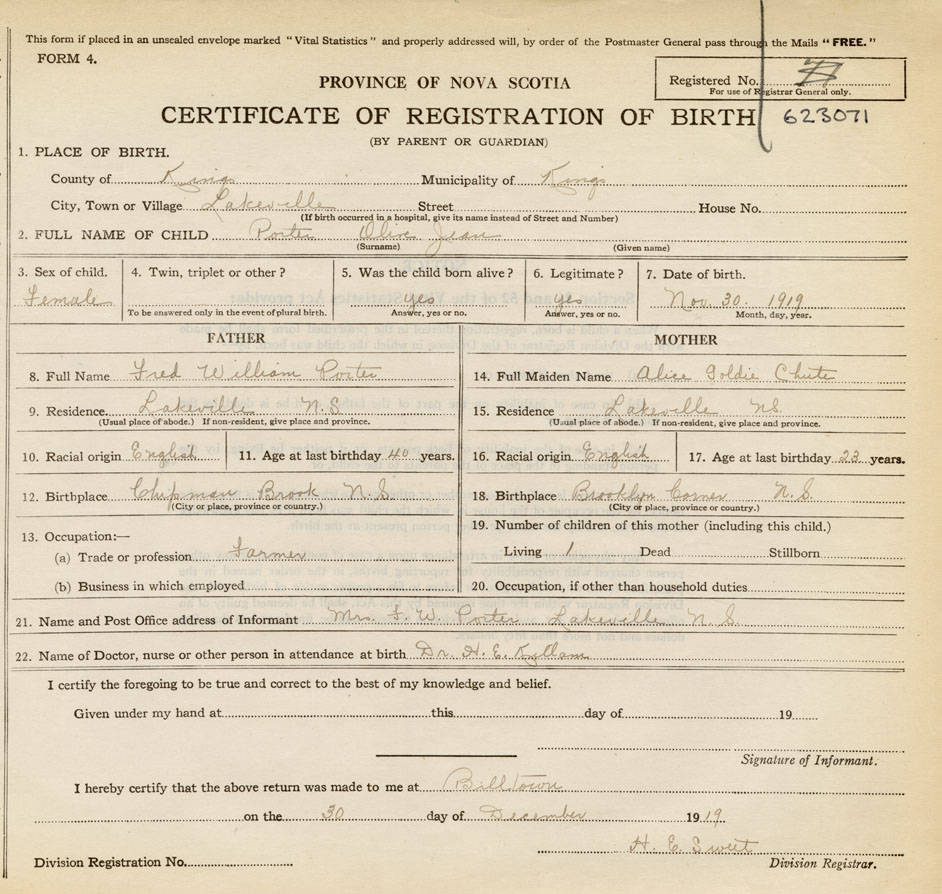 This form if placed in an unsealed envelope marked "Vital Statistics" and properly addressed will, by order of the Postmaster General pass through the Mails "FREE."
FORM 4.
Registered No.
For use of Registrar General only.
PROVINCE OF NOVA SCOTIA
CERTIFICATE OF REGISTRATION OF BIRTH 623071
(BY PARENT OR GUARDIAN)
1. PLACE OF BIRTH.
County of Kings Municipality of Kings
City, Town or Village Lakeville Street House No.
(If birth occurred in a hospital, give its name instead of Street and Number)
2. FULL NAME OF CHILD Porter Olive Jean
(Surname) (Given name)
3. Sex of child. 4. Twin, triplet or other? 5. Was the child born alive? 6. Legitimate? 7. Date of birth.
Female yes yes Nov. 30. 1919
To be answered only in the event of plural birth. Answer, yes or no. Answer, yes or no. Month, day, year.
FATHER
8. Full Name Fred William Porter
9. Residence Lakeville N.S
(Usual place of abode.) If non-resident, give place and province.
10. Racial origin English 11. Age at last birthday 40 years.
12. Birthplace Chipman Brook N.S.
(City or place, province or country.)
13. Occupation:—
(a) Trade or profession Farmer
(b) Business in which employed
MOTHER
14. Full Maiden Name Alice Goldie Chute
15. Residence Lakeville NS.
(Usual place of abode.) If non-resident, give place and province.
16. Racial origin English 17. Age at last birthday 23 years.
18. Birthplace Brooklyn Corner N.S.
(City or place, province or country.)
19. Number of children of this mother (including this child.)
Living 1 Dead Stillborn
20. Occupation, if other than household duties
21. Name and Post Office address of Informant Mrs. F. W. Porter Lakeville N.S.
22. Name of Doctor, nurse or other person in attendance at birth Dr. H. E.
I certify the foregoing to be true and correct to the best of my knowledge and belief.
Given under my hand at this day of 19
Signature of Informant.
I hereby certify that the above return was made to me at Billtown
on the 30 day of December 1919.
H. E. Sweet
Division Registration No. Division Registrar.